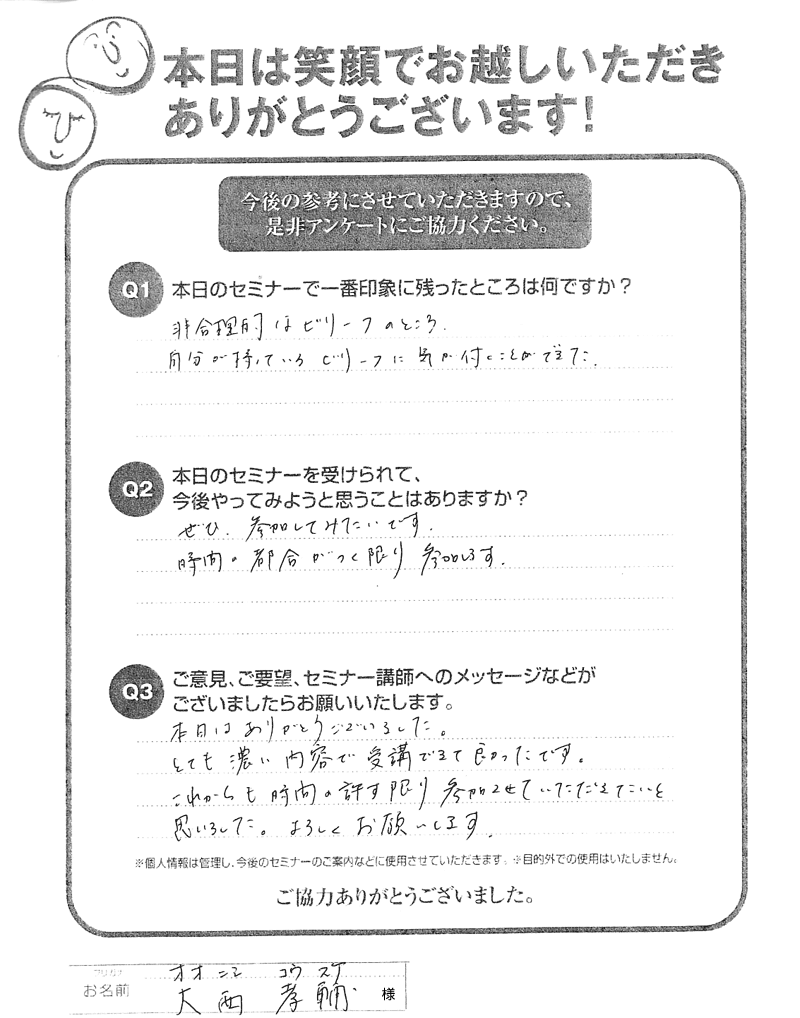 本日は笑顔でお越しいただき
ありがとうございます!
今後の参考にさせていただきますので、
是非アンケートにご協力ください。
Q1 本日のセミナーで一番印象に残ったところは何ですか?
非合理的なビリーフのところ.
自分が持っているビリーフに気が付くことができた.
Q2 本日のセミナーを受けられて、
今後やってみようと思うことはありますか?
ぜひ、参加してみたいです.
時間の都合がつく限り参加します.
Q3 ご意見、ご要望、セミナー講師へのメッセージなどが
ございましたらお願いいたします。
本日はありがとうございました。
とても濃い内容で受講できて良かったです。
これからも時間の許す限り参加させていただきたいと
思いました。よろしくお願いします.
※個人情報は管理し、今後のセミナーのご案内などに使用させていただきます。※目的外での使用はいたしません。
ご協力ありがとうございました。
フリガナ オオニシ コウスケ
お名前 大西 孝輔 様